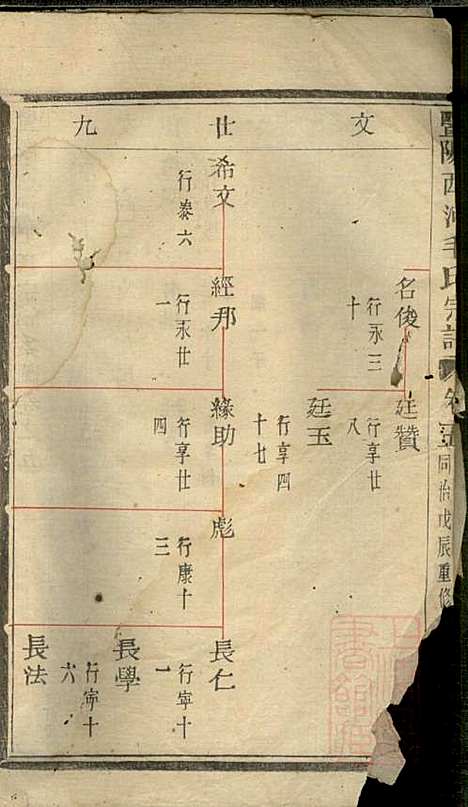 暨陽西河毛氏宗譜
同治戊辰重修
文廿九
名俊
行永三
十
廷贊
行享廿
八
廷玉
行享四
十七
希文
行泰六
經邦
行永廿
一
緣助
行享廿
四
彪
行康十
三
長仁
行寧十
一
長學
行寧十
六
長法